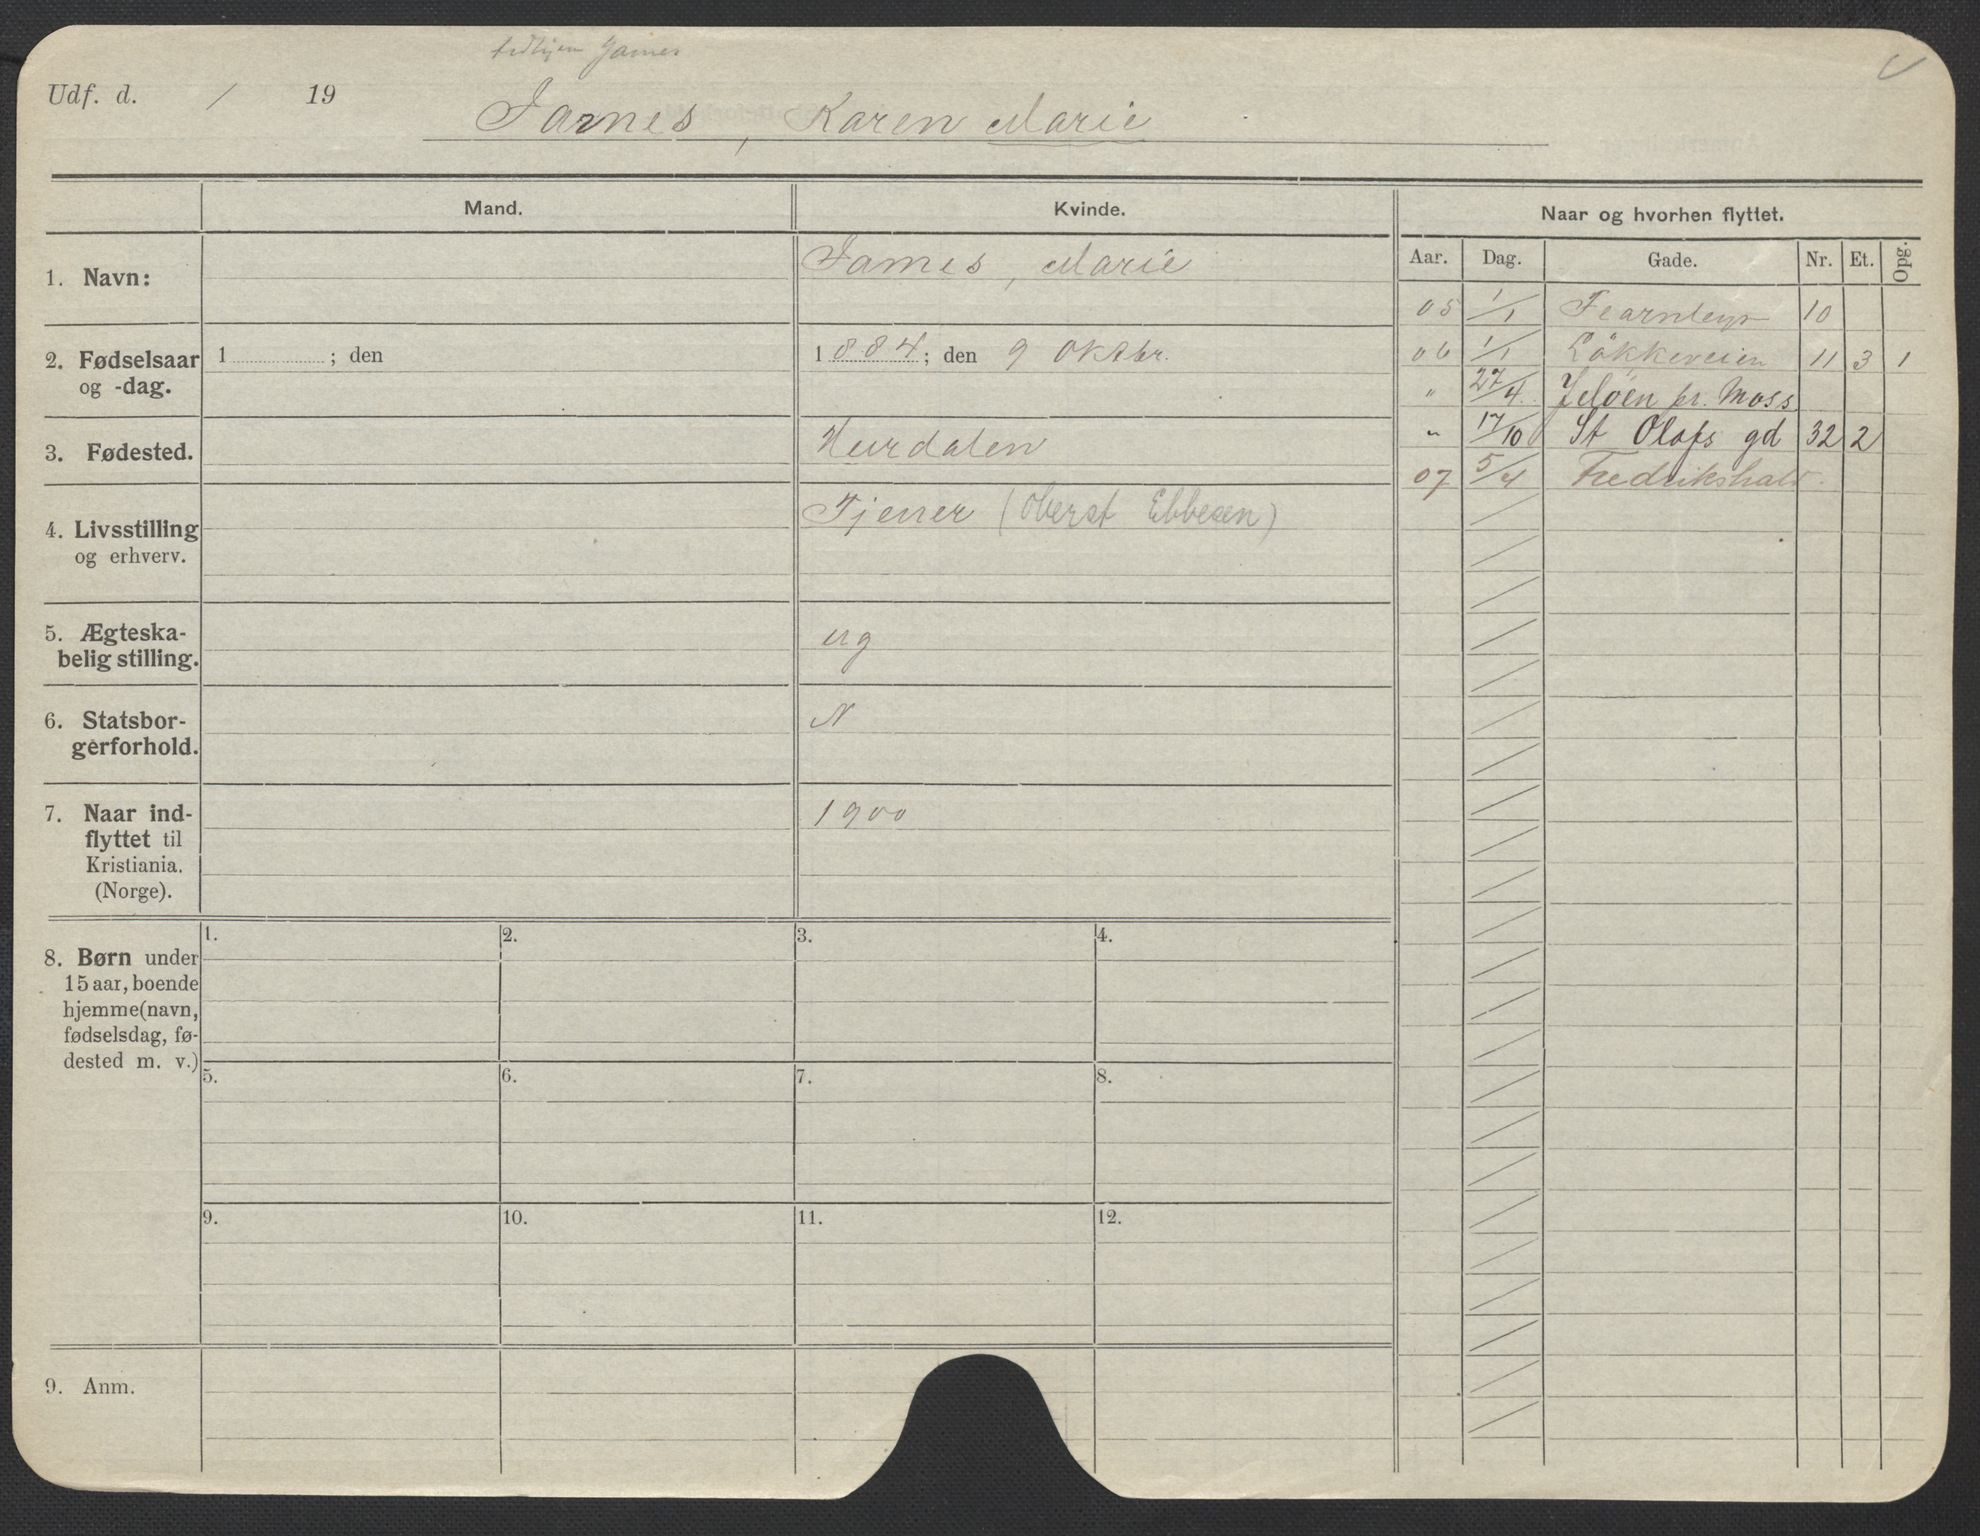 James
Udf. d. / 19
James, Karen Marie
Mand.
Kvinde.
Naar og hvorhen flyttet.
Aar. Dag. Gade. Nr. Et. Opg.
1. Navn:
James, Marie
2. Fødselsaar
og -dag.
1 ; den
1 884 ; den 9 Oktbr.
3. Fødested.
Hurdalen
4. Livsstilling
og erhverv.
Tjener (Oberst Ebbesen)
5. Ægteska-
belig stilling.
ug
6. Statsbor-
gerforhold.
N
7. Naar ind-
flyttet til
Kristiania.
(Norge).
1900
8. Børn under
15 aar, boende
hjemme (navn,
fødselsdag, fø-
dested m. v.)
1. 2. 3. 4.
5. 6. 7. 8.
9. 10. 11. 12.
9. Anm.
05 1/1 Fearnleys 10
06 1/1 Lökkeveien 11 3 1
" 27/4 Jelöen pr. Moss
" 17/10 St Olafs gd 32 2
07 5/4 Fredrikshald.